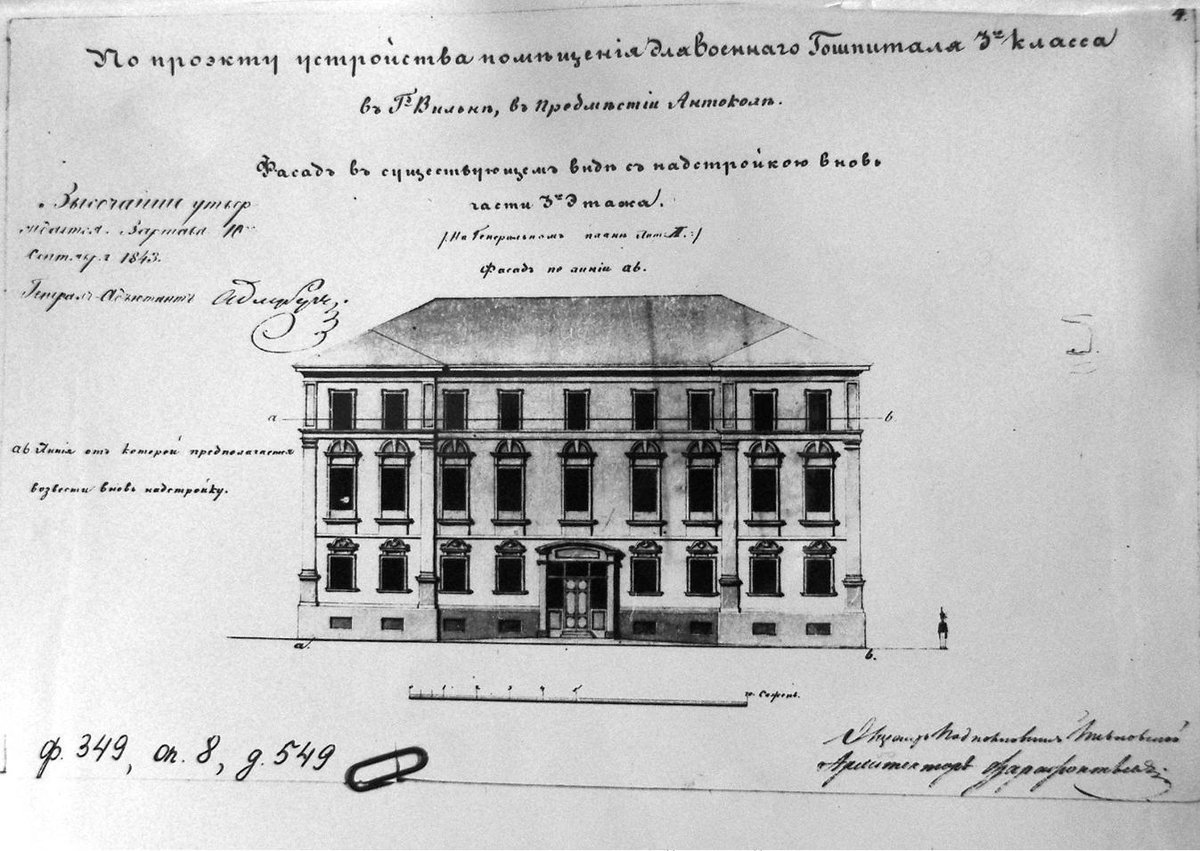 4.
По проэкту устройства помѣщенія для военнаго Гошпиталя 3го класса
въ Гѣ Вильнѣ, въ предмѣстіи Антоколѣ.
Фасадъ въ существующемъ видѣ съ надстройкою вновь
части 3го Этажа.
/:На Генеральномъ планѣ Лит. А.:/
Фасадъ по линіи ab.
Высочайше утвер
ждается. Варшава 10го
Сентября 1843.
Генералъ-Адъютантъ
5.
a
b
ab Линія отъ которой предполагается
возвести вновь надстройку.
a.
b.
1 2 3 4 5
10. Сажень.
Архитекторъ
ф. 349, оп. 8, д. 549